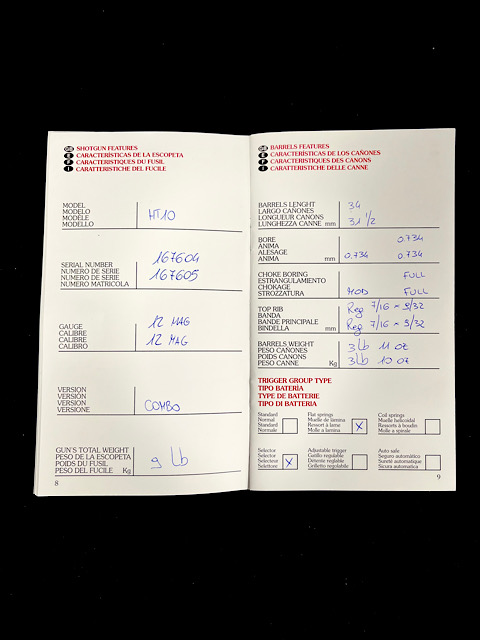 GB SHOTGUN FEATURES
E CARACTERÍSTICAS DE LA ESCOPETA
F CARACTERISTIQUES DU FUSIL
I CARATTERISTICHE DEL FUCILE
MODEL
MODELO
MODÈLE
MODELLO
HT10
SERIAL NUMBER
NUMERO DE SERIE
NUMERO DE SERIE
NUMERO MATRICOLA
167604
167605
GAUGE
CALIBRE
CALIBRE
CALIBRO
12 MAG
12 MAG
VERSION
VERSIÓN
VERSION
VERSIONE
COMBO
GUN'S TOTAL WEIGHT
PESO DE LA ESCOPETA
POIDS DU FUSIL
PESO DEL FUCILE Kg
9 lb
8
GB BARRELS FEATURES
E CARACTERÍSTICAS DE LOS CAÑONES
F CARACTERISTIQUES DES CANONS
I CARATTERISTICHE DELLE CANNE
BARRELS LENGHT
LARGO CAÑONES
LONGUEUR CANONS
LUNGHEZZA CANNE mm
34
31 1/2
BORE
ANIMA
ALESAGE
ANIMA mm
0.734
0.734 0.734
CHOKE BORING
ESTRANGULAMIENTO
CHOKAGE
STROZZATURA
FULL
MOD FULL
TOP RIB
BANDA
BANDE PRINCIPALE
BINDELLA mm
Reg 7/16 ~ 5/32
Reg 7/16 ~ 5/32
BARRELS WEIGHT
PESO CAÑONES
POIDS CANONS
PESO CANNE Kg
3 lb 11 oz
3 lb 10 oz
TRIGGER GROUP TYPE
TIPO BATERÍA
TYPE DE BATTERIE
TIPO DI BATTERIA
Standard
Normal
Standard
Normale
Flat springs
Muelle de lamina
Ressort à lame
Molle a lamina
X
Coil springs
Muelle helicoidal
Ressorts à boudin
Molle a spirale
Selector
Selector
Selecteur
Selettore
X
Adjustable trigger
Gatillo regulable
Détente reglable
Grilletto regolabile
Auto safe
Seguro automático
Sureté automatique
Sicura automatica
9